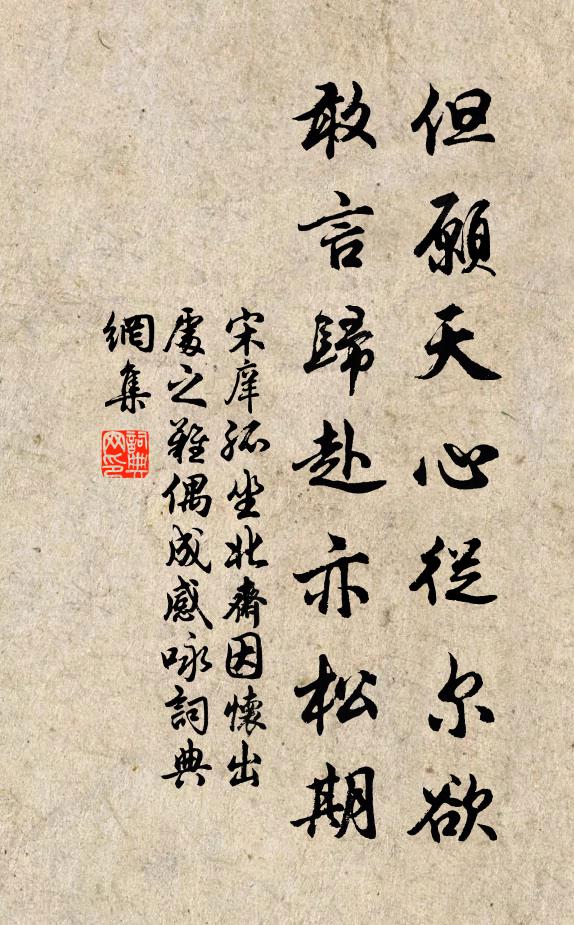 但願天心從尔欲
敢言歸赴亦松期
宋庠孤坐北齋因懷出
處之難偶成感咏詞典
網集
詞典
网印